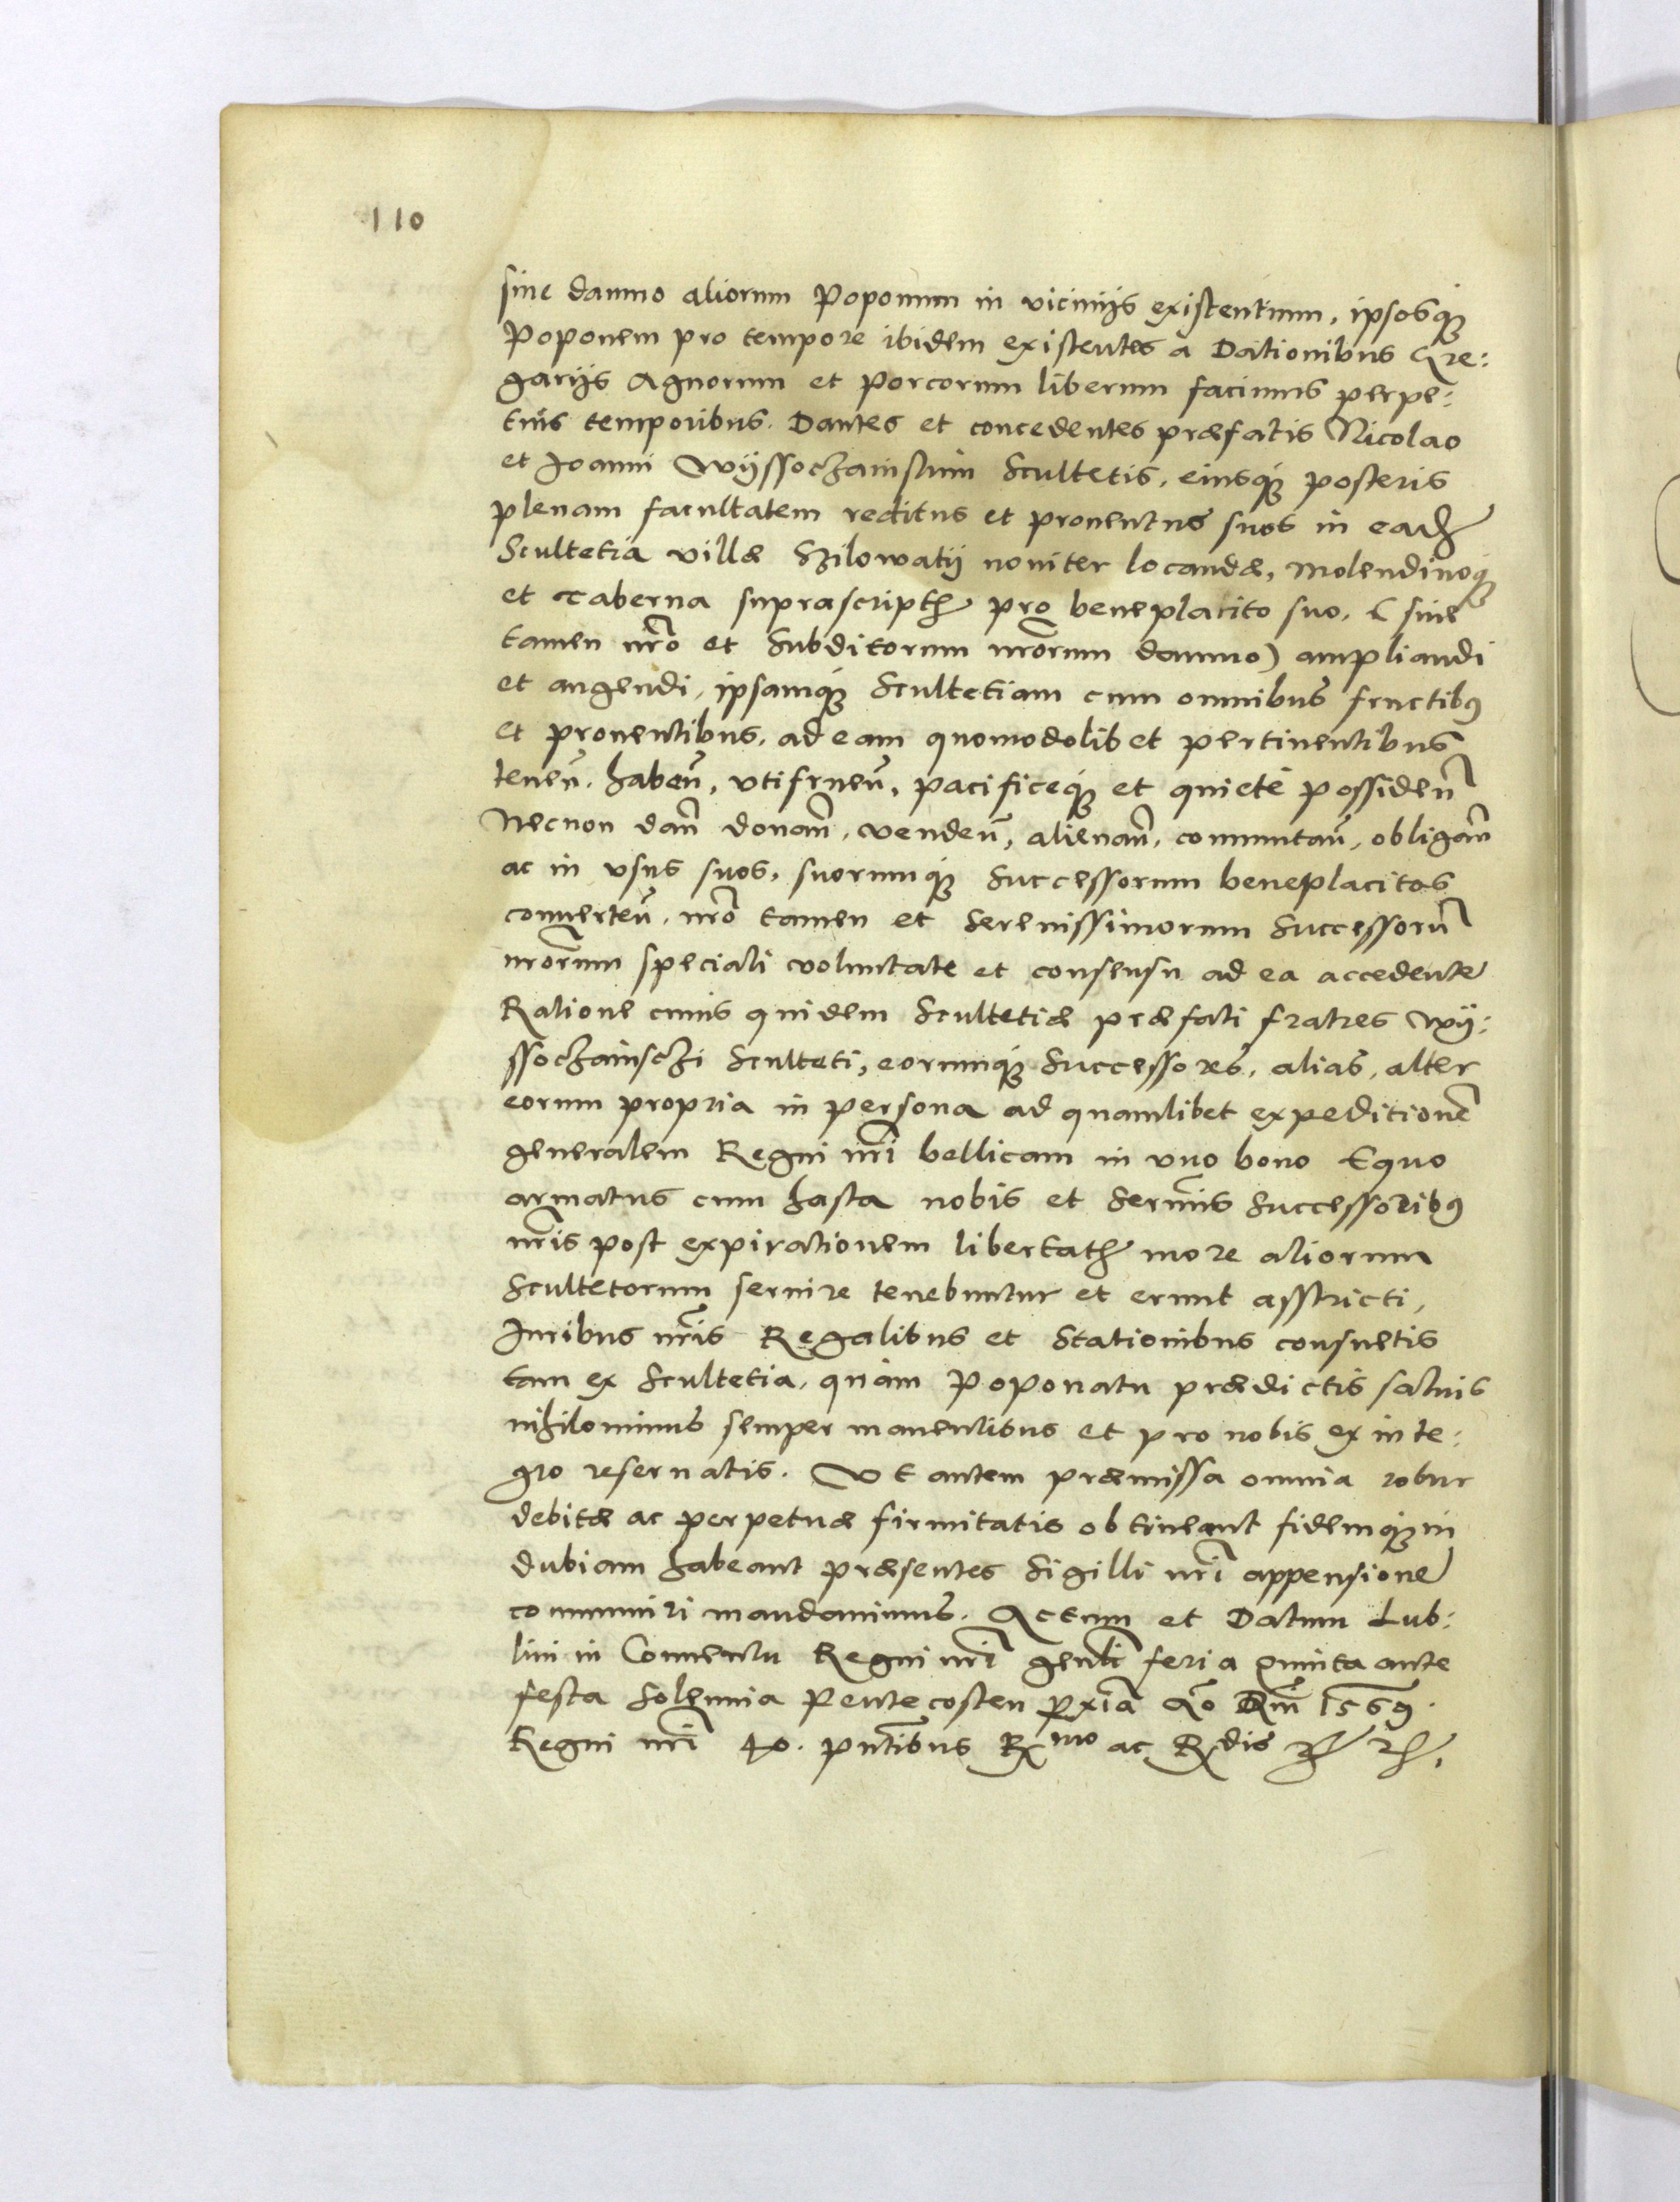 110
sine damno aliorum Poponum in vicinijs existentium, ipsosq;
Poponem pro tempore ibidem existentes a Dationibus Gre:
garijs Agnorum et Porcorum liberum facimus perpe:
tuis temporibus. Dantes et concedentes præfatis Nicolao
et Joanni Wÿssochainskim Scultetis, eiusq; posteris
plenam facultatem reditus et prouentus suos in eadem
Scultetia villæ Szilowatij noviter locandæ, Molendinoq;
et Taberna suprascriptis pro beneplacito suo, (sine
tamen nr̃o et Subditorum nr̃orum damno) ampliandi
et augendi, ipsamq; Scultetiam cum omnibus fructibus
et prouentibus, ad eam quomodolibet pertinentibus
teneñ. habeñ, vtifrueñ, pacificeq; et quietè possideñ
Necnon dañ donañ, vendeñ, alienañ, commutañ, obligañ
ac in vsus suos, suorumq; Successorum beneplacitos
conuerteñ, nr̃o tamen et Serenissimorum Successorũ
nr̃orum speciali voluntate et consensu ad ea accedente
Ratione cuius quidem Scultetiæ præfati fratres Wÿ:
ssochainschi Sculteti, eorumq; Successores, alias, alter
eorum propria in persona ad quamlibet expeditionẽ
generalem Regni nr̃i bellicam in vno bono Equo
armatus cum hasta nobis et Serm̃is Successoribus
nr̃is post expirationem libertatis more aliorum
Scultetorum seruire tenebuntur et erunt asstricti,
Juribus nr̃is Regalibus et Stationibus consuetis
tam ex Scultetia, quàm Poponatu prædictis saluis
nihilominus semper manentibus et pro nobis ex inte:
gro reseruatis. Vt autem præmissa omnia robur
debitæ ac perpetuæ firmitatis obtineant fidemq; in
dubiam habeant præsentes Sigilli nr̃i appensione
communiri mandauimus. Actum et Datum Lub:
lini in Conuentu Regni nr̃i geñli feria quinta ante
festa Solennia Pentecosten p̱xĩa Aõ Dñi 1569.
Regni nr̃i 40. pñtibus Rmo ac Rdis